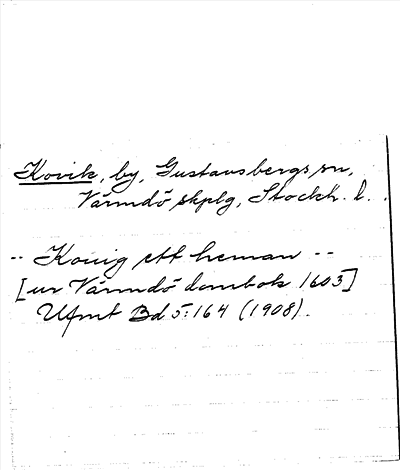 Kovik, by, Gustavsbergs sn,
Värmdö skplg, Stockh. l.
-- Kouig ett heman --
[ur Värmdö dombok 1605]
Ufmt Bd 5:164 (1908).